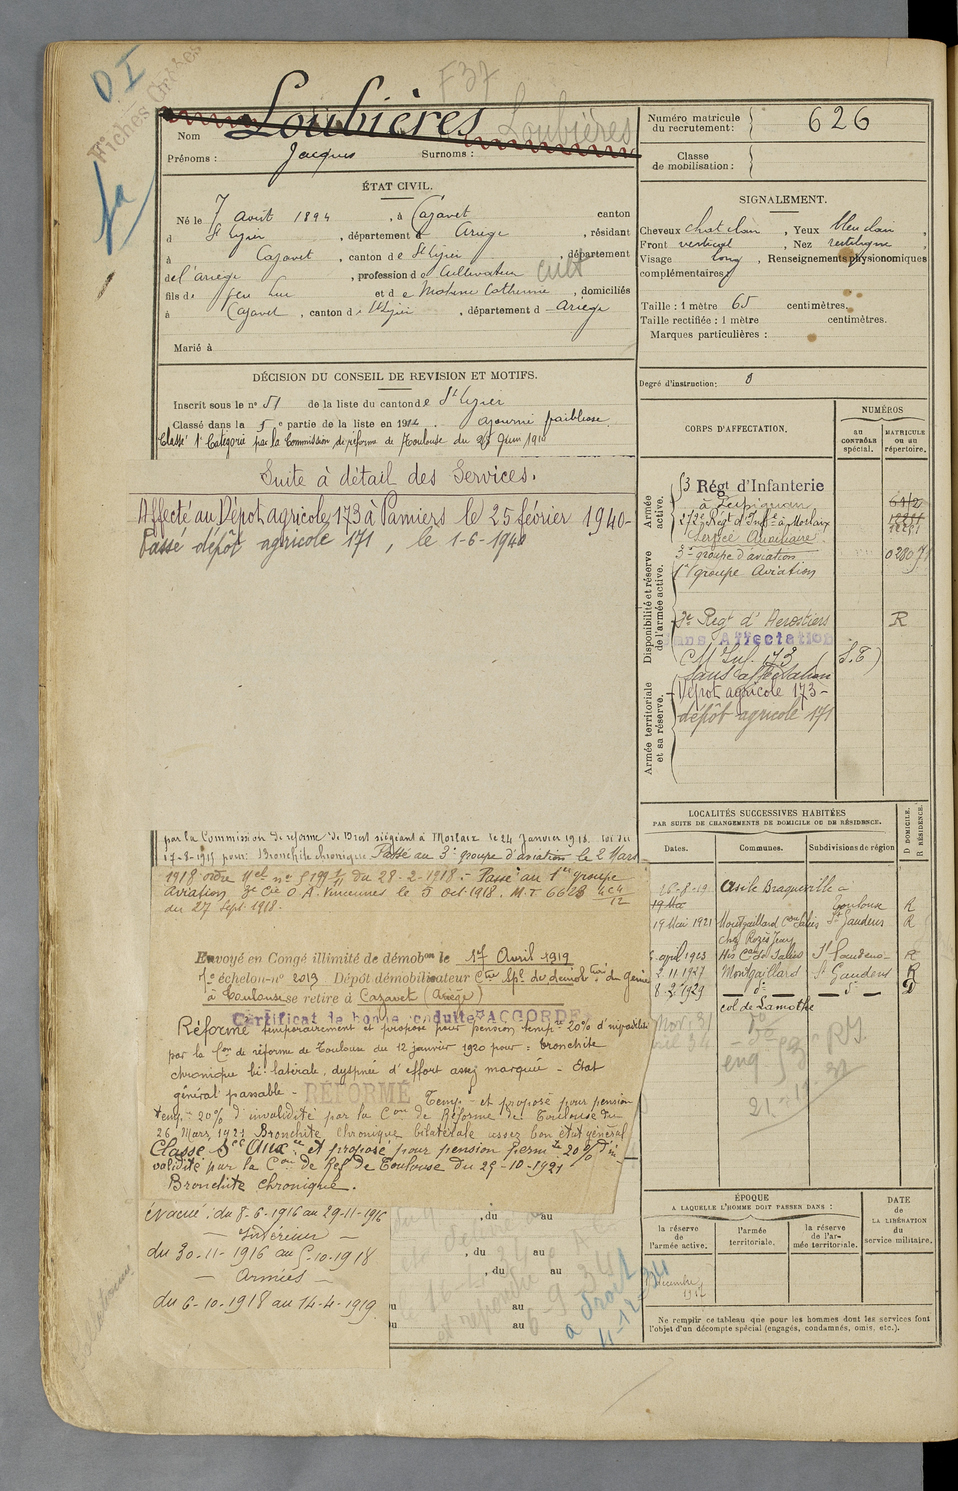 D I
Fiches
F 37
Loubières Loubières
Nom
Prénoms : Jacques Surnoms :
ÉTAT CIVIL.
Né le 7 Août 1894, à Cazavet canton
d St Lizier, département d Ariège, résidant
à Cazavet, canton de St Lizier, département
de l'Ariège, profession de Cultivateur cult
fils de feu Luc et de Mature Catherine, domiciliés
à Cazavet, canton d St Lizier, département d Ariège
Marié à
DÉCISION DU CONSEIL DE REVISION ET MOTIFS.
Inscrit sous le n° 51 de la liste du canton de St Lizier
Classé dans la 5e partie de la liste en 1914. ajourné faiblesse.
Classé 1e Catégorie par la Commission de réforme de Toulouse du Juin
Suite à détail des Services.
Affecté au Dépôt agricole 173 à Pamiers le 25 février 1940-
Passé dépôt agricole 171, le 1-6-1940
par la Commission de réforme de Brest siégeant à Morlaix le 24 Janvier 1918. loi du
17-8-1915 pour: Bronchite chronique Passé au 3e groupe d'aviation le 2 Mars
1918 ordre du 28-2-1918.- Passé au 1er groupe
Aviation, 3e Cie O.A. Vincennes le 5 Oct. 1918. M.T 6623
du 27 Sept. 1918.
Envoyé en Congé illimité de démobon le 17 Avril 1919
1e échelon-n° 2013 Dépôt démobilisateur Ctre Spl de démob du Génie
à Toulouse se retire à Cazavet (Ariège)
Certificat de bonne conduite "ACCORDÉ"
Réformé temporairement et proposé pour pension tempre 20% d'invalidité
par la Con de réforme de Toulouse du 12 janvier 1920 pour: bronchite
chronique bi-latérale, dyspnée d'effort assez marquée - État
général passable - RÉFORMÉ Temp. et proposé pour pension
temp. 20% d'invalidité par la Con de Réforme de Toulouse du
26 Mars 1921 Bronchite chronique bilatérale assez bon état général
Classé Sce Auxre et proposé pour pension perm. 20% d'in-
validité par la Con de Réf. de Toulouse du 29-10-1921
Bronchite chronique.
évacué : du 8-6-1916 au 29-11-1916
- Intérieur -
du 30-11-1916 au 5-10-1918
- Armées -
du 6-10-1918 au 14-4-1919
, du au
, du au
, du au
du au
du au
Numéro matricule du recrutement: 626
Classe de mobilisation :
SIGNALEMENT.
Cheveux chat clair, Yeux bleu clair,
Front vertical, Nez rectiligne,
Visage long, Renseignements physionomiques
complémentaires
Taille : 1 mètre 65 centimètres.
Taille rectifiée : 1 mètre centimètres.
Marques particulières :
Degré d'instruction: 0
CORPS D'AFFECTATION.
NUMÉROS
au CONTRÔLE spécial.
MATRICULE ou au répertoire.
Armée active.
53 Régt d'Infanterie
à Perpignan
272e Régt d'Infie à Morlaix
Service Auxiliaire.
3e groupe d'aviation
1er groupe Aviation
Disponibilité et réserve de l'armée active.
2e Regt d'Aerostiers R
Sans Affectation
C M Inf. 173 (S.T)
Sans affectation
Armée territoriale et sa réserve.
Dépôt agricole 173-
dépôt agricole 171
LOCALITÉS SUCCESSIVES HABITÉES
PAR SUITE DE CHANGEMENTS DE DOMICILE OU DE RÉSIDENCE.
Dates. Communes. Subdivisions de région D DOMICILE. R RÉSIDENCE.
16-8-19 Asile Braqueville à
19 Mai Toulouse R
19 Mai 1921 Montgaillard Con Salies St Gaudens R
chez Rozès Jean
avril 1923 His Con de Salies St Gaudens R
2.11.1927 Montgaillard St Gaudens R
8-2-1929 do do D
col de Lamothe
Nov. 31
ÉPOQUE
A LAQUELLE L'HOMME DOIT PASSER DANS :
DATE DE LA LIBÉRATION du service militaire.
la réserve de l'armée active.
l'armée territoriale.
la réserve de l'armée territoriale.
Ne remplir ce tableau que pour les hommes dont les services font
l'objet d'un décompte spécial (engagés, condamnés, omis, etc.).